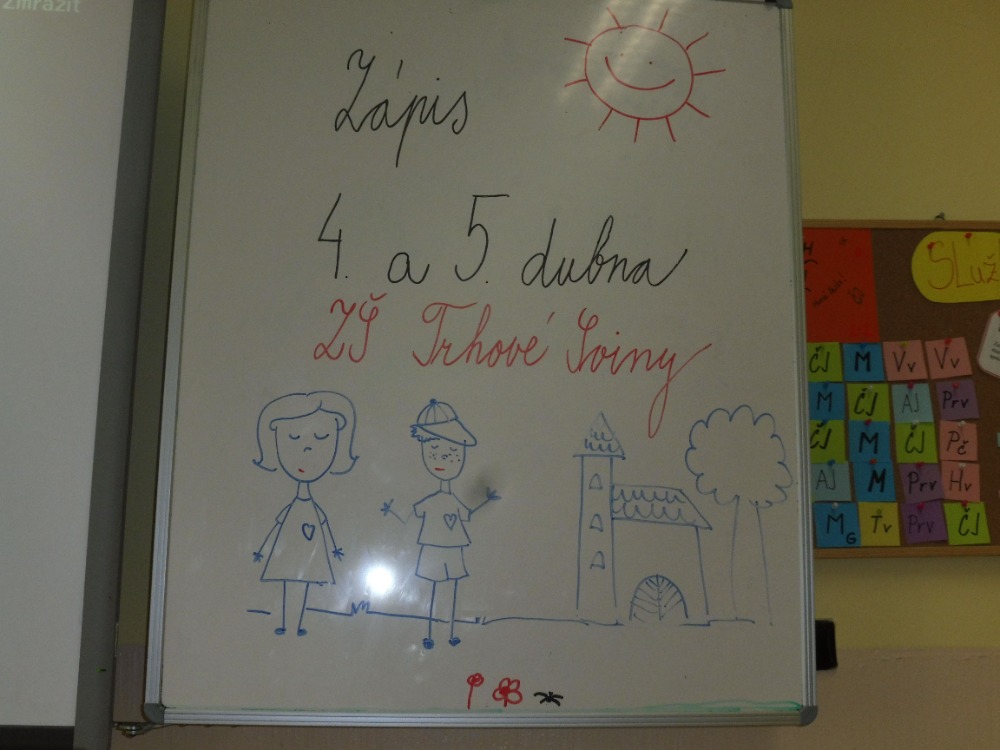 Zmrazit
Zápis
4. a 5. dubna
ZŠ Trhové Sviny
Služ
ČJ M Vv Vv
M ČJ AJ Prv
ČJ M ČJ Pč
AJ M Prv Hv
MG Tv Prv ČJ